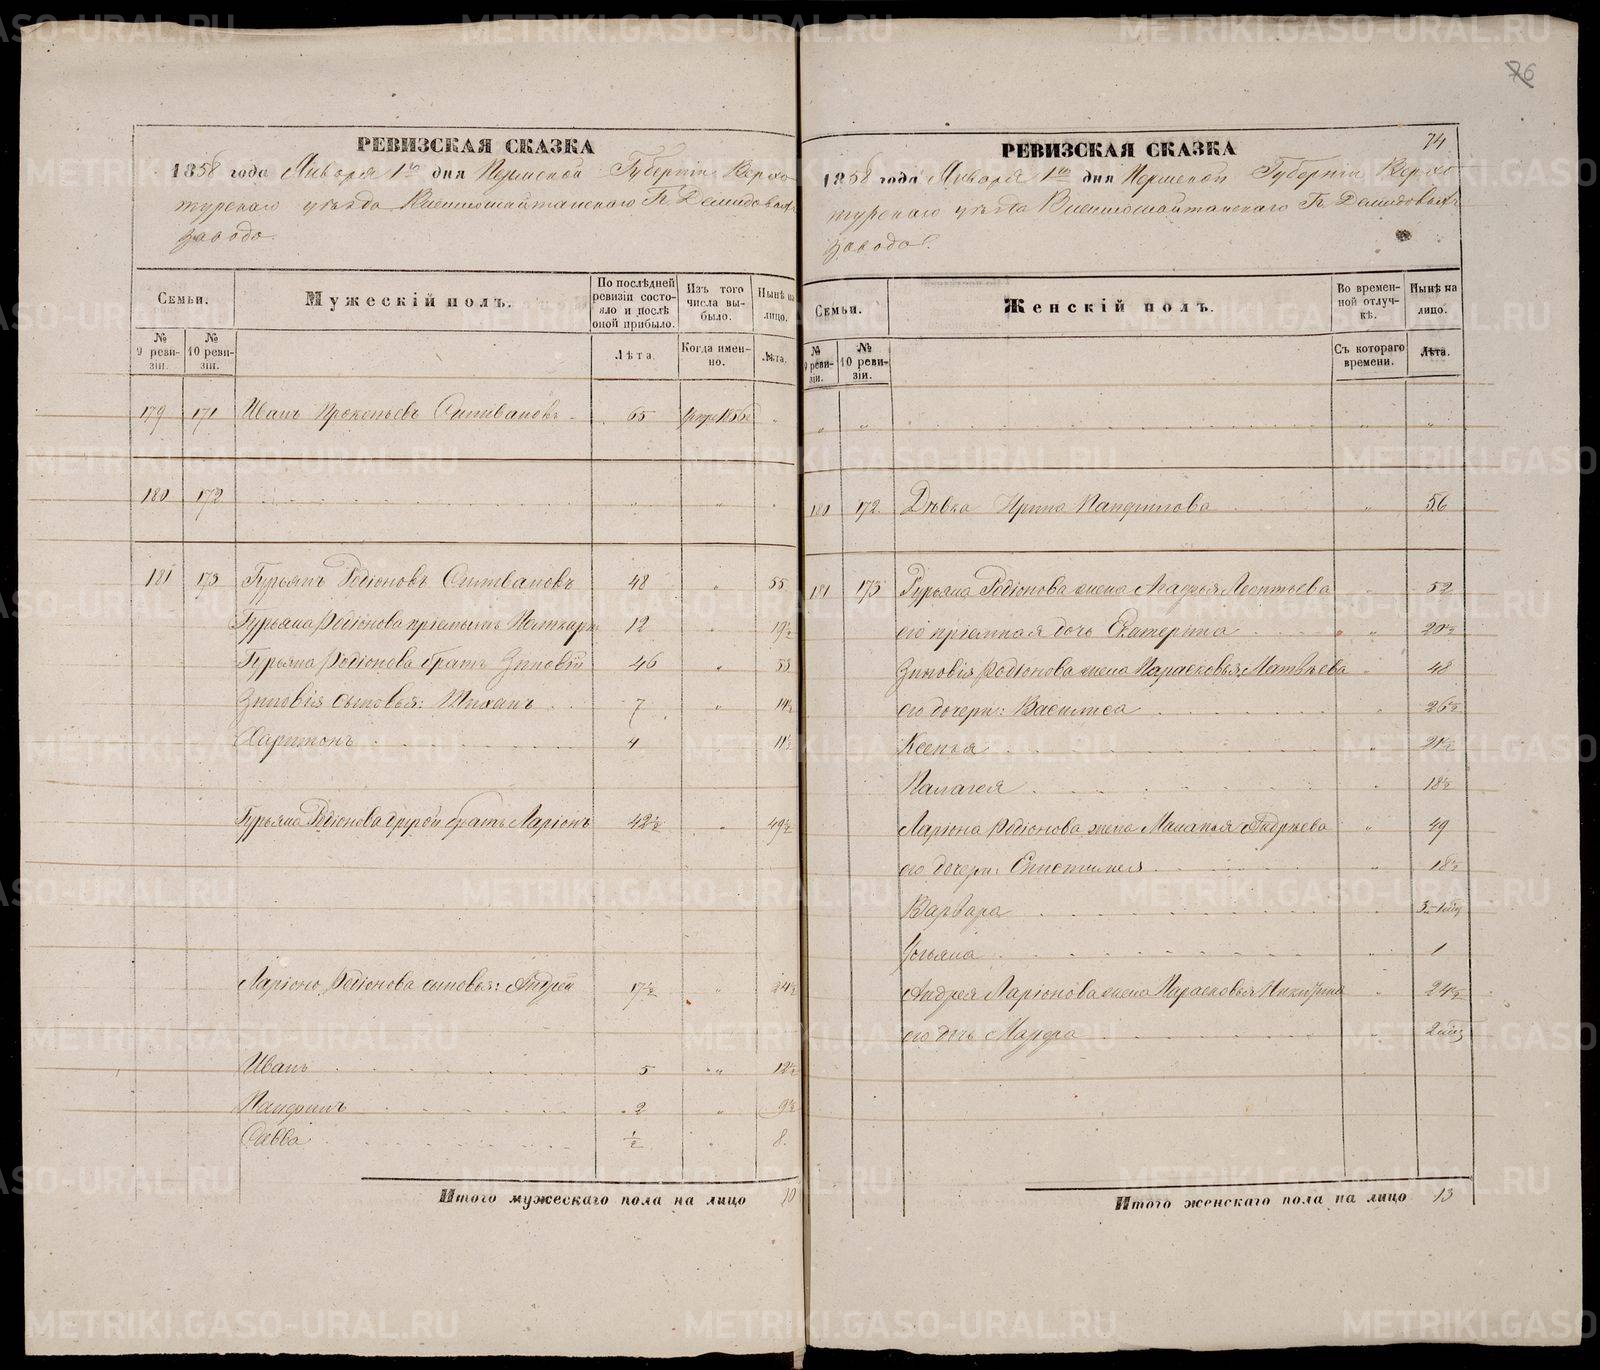 76
РЕВИЗСКАЯ СКАЗКА
1858 года Января 1го дня Пермской Губерніи Верхо-
турскаго уѣзда Висимошайтанскаго Гг. Демидовыхъ
завода.
Семьи.
Мужескій полъ.
По послѣдней ревизіи состояло и послѣ оной прибыло.
Изъ того числа выбыло.
Нынѣ на лицо.
№ 9 ревизіи.
№ 10 ревизіи.
Лѣта.
Когда именно.
Лѣта.
179 171 Иванъ Прокопьевъ 65
180 172
181 173 Гурьянъ Родіоновъ 48 " 55
Гурьяна Родіонова пріемышъ 12 " 19½
Гурьяна Родіонова братъ Зиновій 46 " 53
Зиновія сыновья: 7 " 14½
Харитонъ 4 11½
Гурьяна Родіонова другой братъ Ларіонъ 42½ " 49½
Ларіона Родіонова сыновья: Андрей 17½ " 24½
Иванъ 5 " 12½
Панфилъ 2 " 9½
Савва ½ " 8
Итого мужескаго пола на лицо 10
74
РЕВИЗСКАЯ СКАЗКА
1858 года Января 1го дня Пермской Губерніи Верхо-
турскаго уѣзда Висимошайтанскаго Гг. Демидовыхъ
завода.
Семьи.
Женскій полъ.
Во временной отлучкѣ.
Нынѣ на лицо.
№ 9 ревизіи.
№ 10 ревизіи.
Съ котораго времени.
Лѣта.
180 172 Дѣвка Ирина Панфилова " 56
181 173 Гурьяна Родіонова жена Агафья Леонтьева " 52
его пріемная дочь Екатерина " 20½
Зиновія Родіонова жена Парасковья Матвѣева " 48
его дочери: Василиса " 26½
Ксенья " 21½
Палагея 18½
Ларіона Родіонова жена Маланья Андреева " 49
его дочери: Епистимея " 18½
Варвара
Ульяна " 1
Андрея Ларіонова жена Парасковья Никитина " 24½
его дочь Марфа " 2
Итого женскаго пола на лицо 13
METRIKI.GASO-URAL.RU